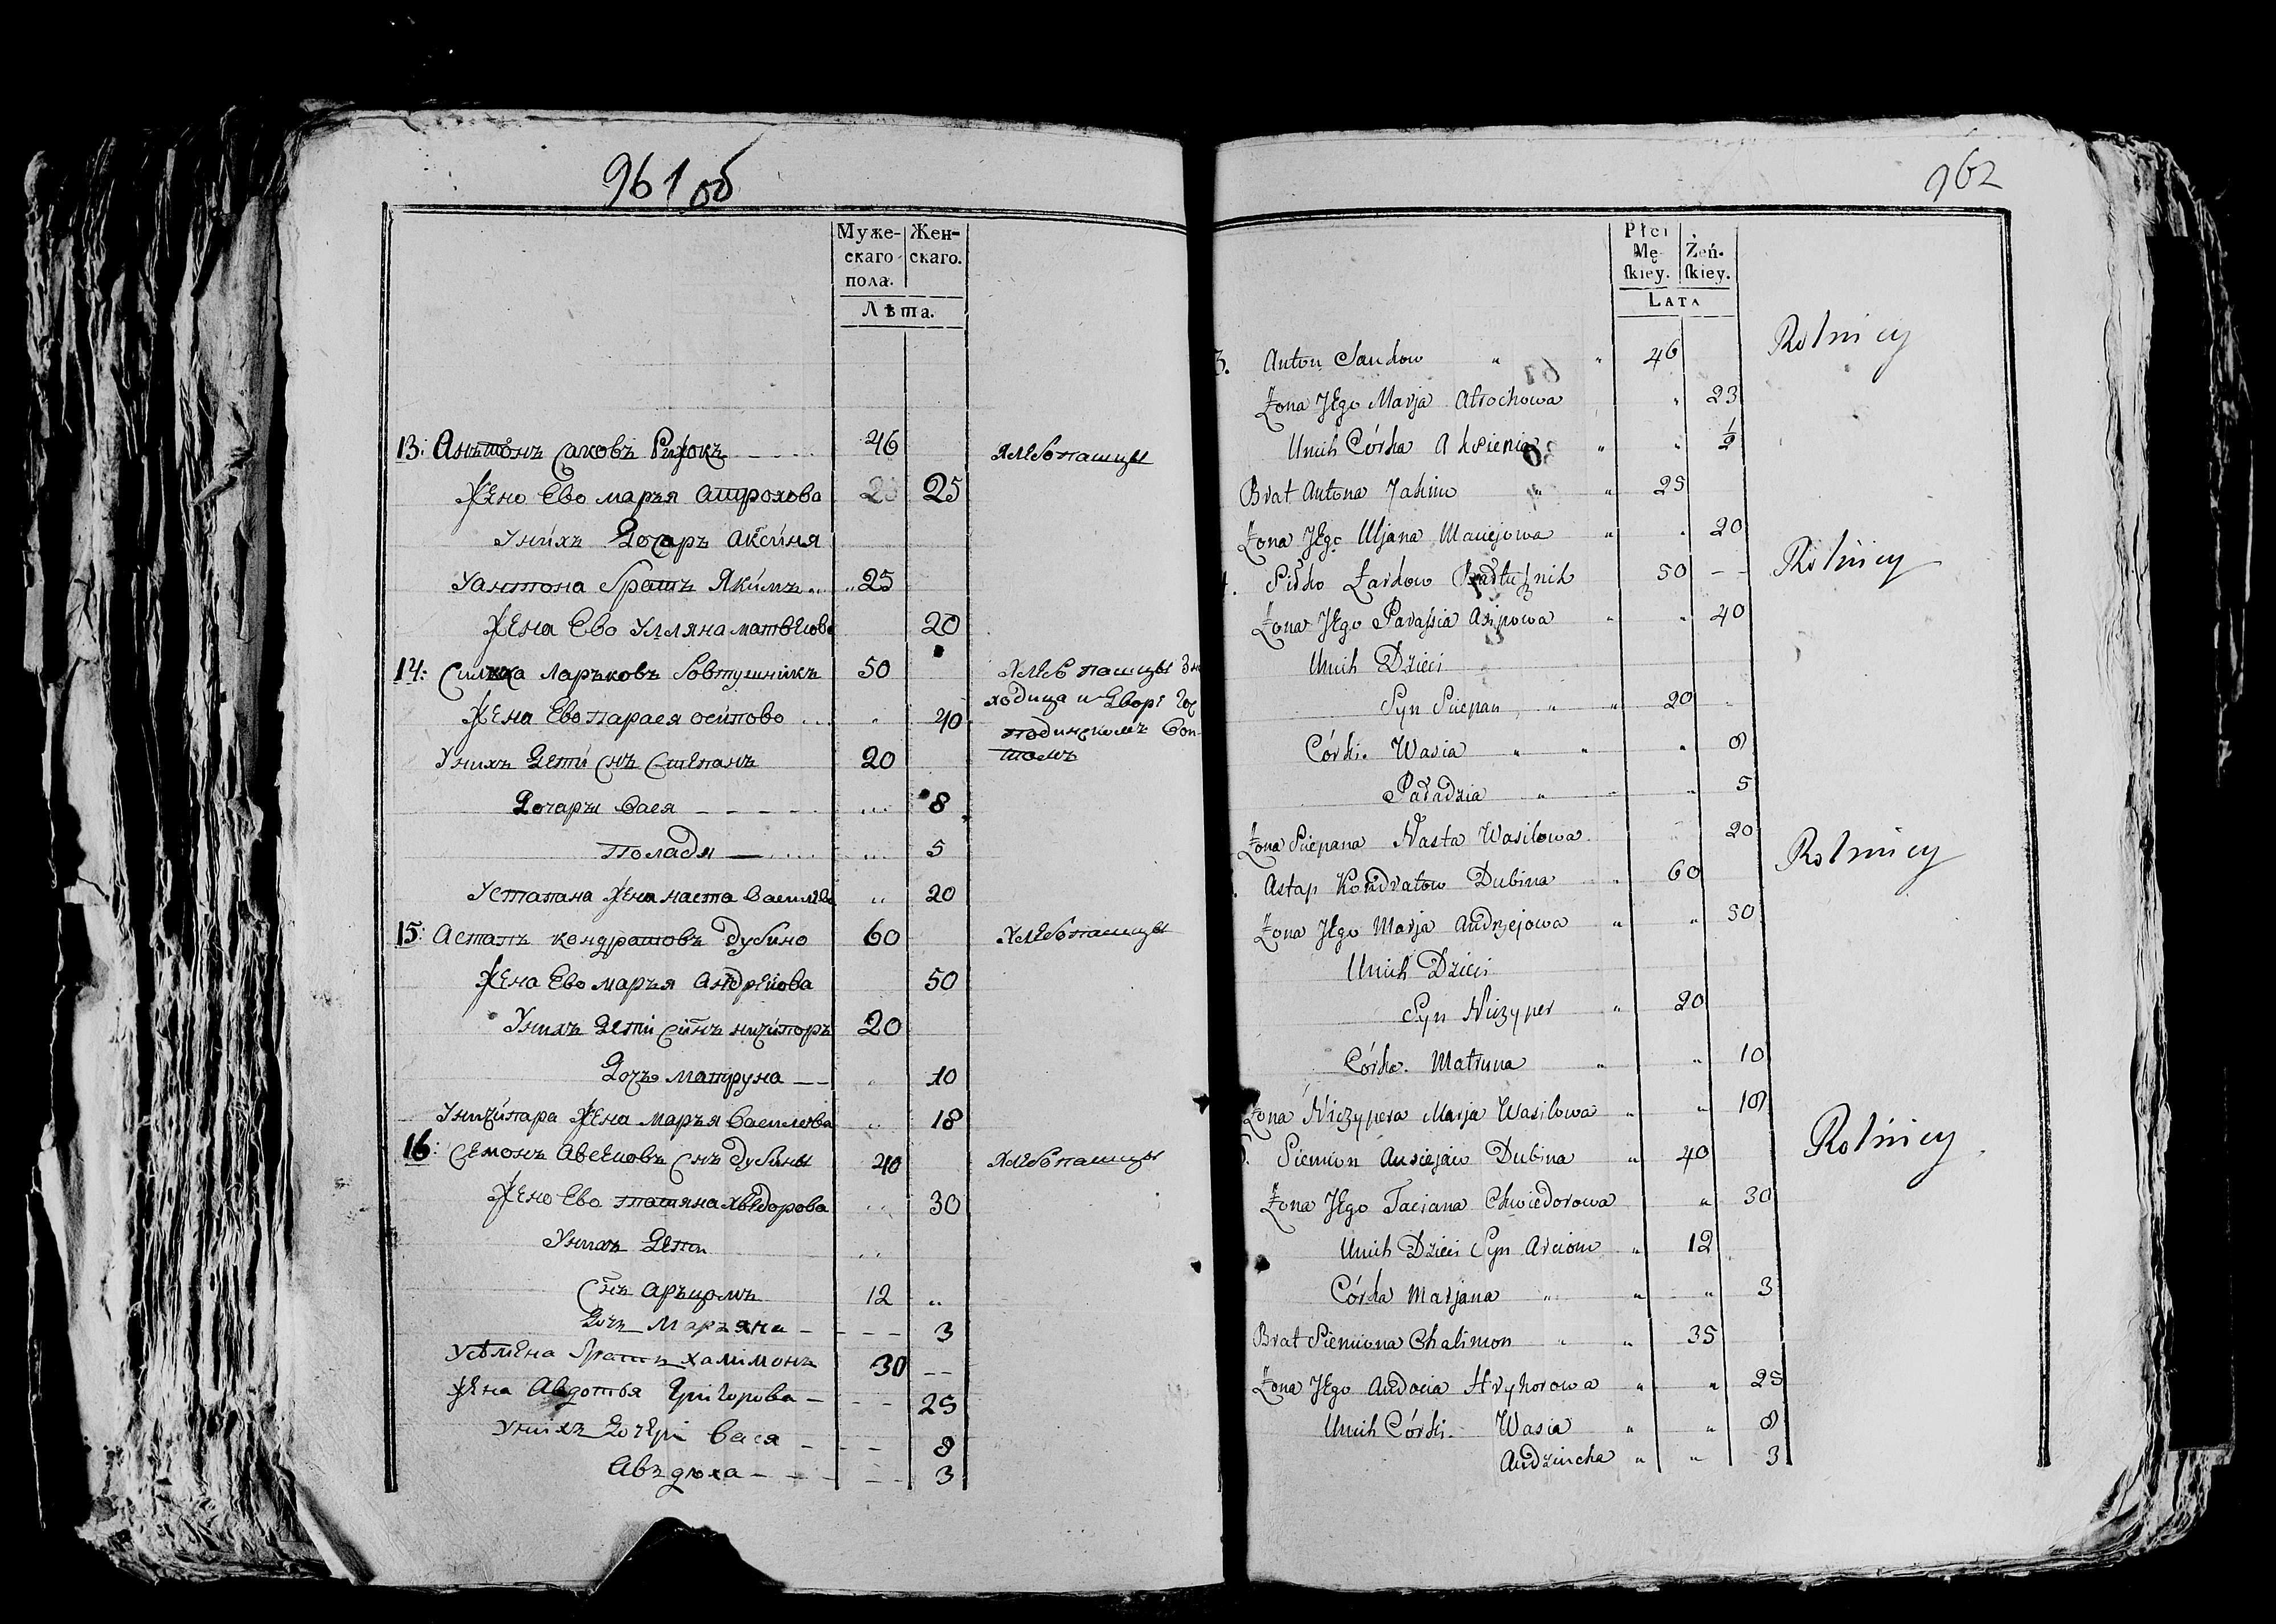 961 об
Муже- Жен-
скаго скаго.
пола.
Лѣта.
13: Анътонъ Саковъ Рыжокъ 46 хлебопашцы
Жено Ево марья атрохова 25
Унихъ дочаръ аксиня
Уантона братъ Якимъ 25
Жена Ево Улляна матвеюва 20
14: Силка Ларъковъ бовтушникъ 50 хлеб пашцы
Жена Ево парася осипово 40 ходица и дворе
Унихъ дети снъ степанъ 20
дочаръ вася 8
поладя 5
Устапана Жена наста васильва 20
15: Астапъ кондратовъ дубино 60 хлебопашцы
Жена Ево марья андреюва 50
Унихъ дети синъ ничипоръ 20
дочъ матруна 10
Уничипара Жена марья васильева 18
16: Семонъ Авсеиовъ снъ дубины 40 хлебопашцы
Жено Ево татяна хведорова 30
Унихъ дети
снъ аръцомъ 12
дочъ маръяна 3
Усѣмена братъ халимонъ 30
Жена Авдотья григорова 25
Унихъ дочери вася 8
Авъдюха 3
962
Płci
Mę- Żeń-
skiey. skiey.
LATA
3. Anton Sankow 46 Rolnicy
Żona JEgo Marja Atrochowa 23
Unich Córka Aksienia ½
Brat Antona Jakim 25
Żona JEgo Uljana Maciejowa 20
Siłko Łarkow 50 Rolnicy
Żona JEgo Parassia Asipowa 40
Unich Dzieci
Syn Sciepan 20
Córki. Wasia 8
Paładzia 5
Żona Sciepana Nasta Wasilowa 20
Astap Kondratow Dubina 60 Rolnicy
Żona JEgo Marja Andrzejowa 50
Unich Dzieci
Syn Niczyper 20
Córka. Matruna 10
Żona Niczypera Marja Wasilowa 18
Siemion Ausiejaw Dubina 40 Rolnicy
Żona JEgo Taciana Chwiedorowa 30
Unich Dzieci Syn Arciom 12
Córka Marjana 3
Brat Siemiona Chalimon 35
Żona JEgo Audocia Hryhorowa 25
Unich Córki. Wasia 8
Audziucha 3